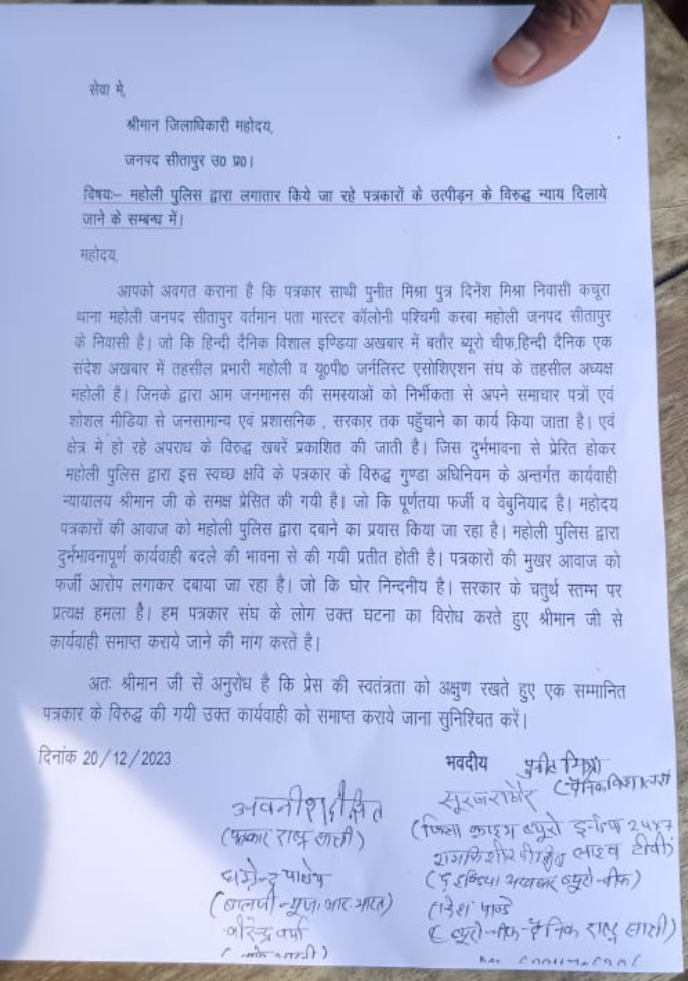 सेवा मे,
श्रीमान जिलाधिकारी महोदय,
जनपद सीतापुर उ0 प्र0।
विषयः– महोली पुलिस द्वारा लगातार किये जा रहे पत्रकारों के उत्पीड़न के विरुद्ध न्याय दिलाये
जाने के सम्बन्ध में।
महोदय,
आपको अवगत कराना है कि पत्रकार साथी पुनीत मिश्रा पुत्र दिनेंश मिश्रा निवासी कचूरा
थाना महोली जनपद सीतापुर वर्तमान पता मास्टर कॉलोनी पश्चिमी कस्बा महोली जनपद सीतापुर
के निवासी है। जो कि हिन्दी दैनिक विशाल इण्डिया अखबार में बतौर ब्यूरो चीफ,हिन्दी दैनिक एक
संदेश अखबार में तहसील प्रभारी महोली व यू0पी0 जर्नलिस्ट एसोशिएशन संघ के तहसील अध्यक्ष
महोली है। जिनके द्वारा आम जनमानस की समस्याओं को निर्भीकता से अपने समाचार पत्रों एवं
शोशल मीडिया से जनसामान्य एवं प्रशासनिक , सरकार तक पहुँचाने का कार्य किया जाता है। एवं
क्षेत्र मे हो रहे अपराध के विरुद्ध खबरें प्रकाशित की जाती है। जिस दुर्भभावना से प्रेरित होकर
महोली पुलिस द्वारा इस स्वच्छ क्षवि के पत्रकार के विरुद्ध गुण्डा अधिनियम के अन्तर्गत कार्यवाही
न्यायालय श्रीमान जी के समक्ष प्रेसित की गयी है। जो कि पूर्णतया फर्जी व वेबुनियाद है। महोदय
पत्रकारों की आवाज को महोली पुलिस द्वारा दबाने का प्रयास किया जा रहा है। महोली पुलिस द्वारा
दुर्भभावनापूर्ण कार्यवाही बदले की भावना से की गयी प्रतीत होती है। पत्रकारों की मुखर आवाज को
फर्जी आरोप लगाकर दबाया जा रहा है। जो कि घोर निन्दनीय है। सरकार के चतुर्थ स्तम्भ पर
प्रत्यक्ष हमला है। हम पत्रकार संघ के लोग उक्त घटना का विरोध करते हुए श्रीमान जी से
कार्यवाही समाप्त कराये जाने की मांग करतें है।
अतः श्रीमान जी सें अनुरोध है कि प्रेस की स्वतंत्रता को अक्षुण रखते हुए एक सम्मानित
पत्रकार के विरुद्ध की गयी उक्त कार्यवाही को समाप्त कराये जाना सुनिश्चित करें।
दिनांक 20/12/2023
भवदीय पुनीत मिश्रा
अवनीश दीक्षित
(पत्रकार राष्ट्र साक्षी)
धर्मेन्द्र पाण्डेय
वीरेन्द्र वर्मा
सूरज राठौर
(जिला क्राइम ब्यूरो इण्डिया 24x7
लाइव टीवी)
(द इण्डिया अखबार ब्यूरो चीफ)
पाण्डे
(ब्यूरो चीफ दैनिक राष्ट्र साक्षी)